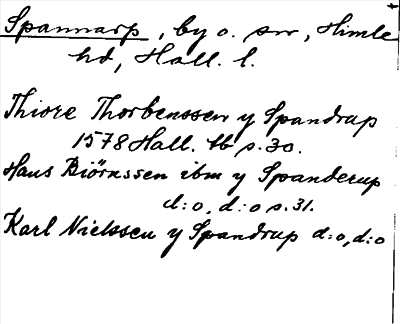 Spannarp, by o. sn, Himle
hd, Hall. l.
Thiore Thorbenssen y Spandrup
1578 Hall. tb s. 30.
Hans Biörnssen ibm y Spanderup
d:o, d:o s. 31.
Karl Nielssen y Spandrup d:o, d:o